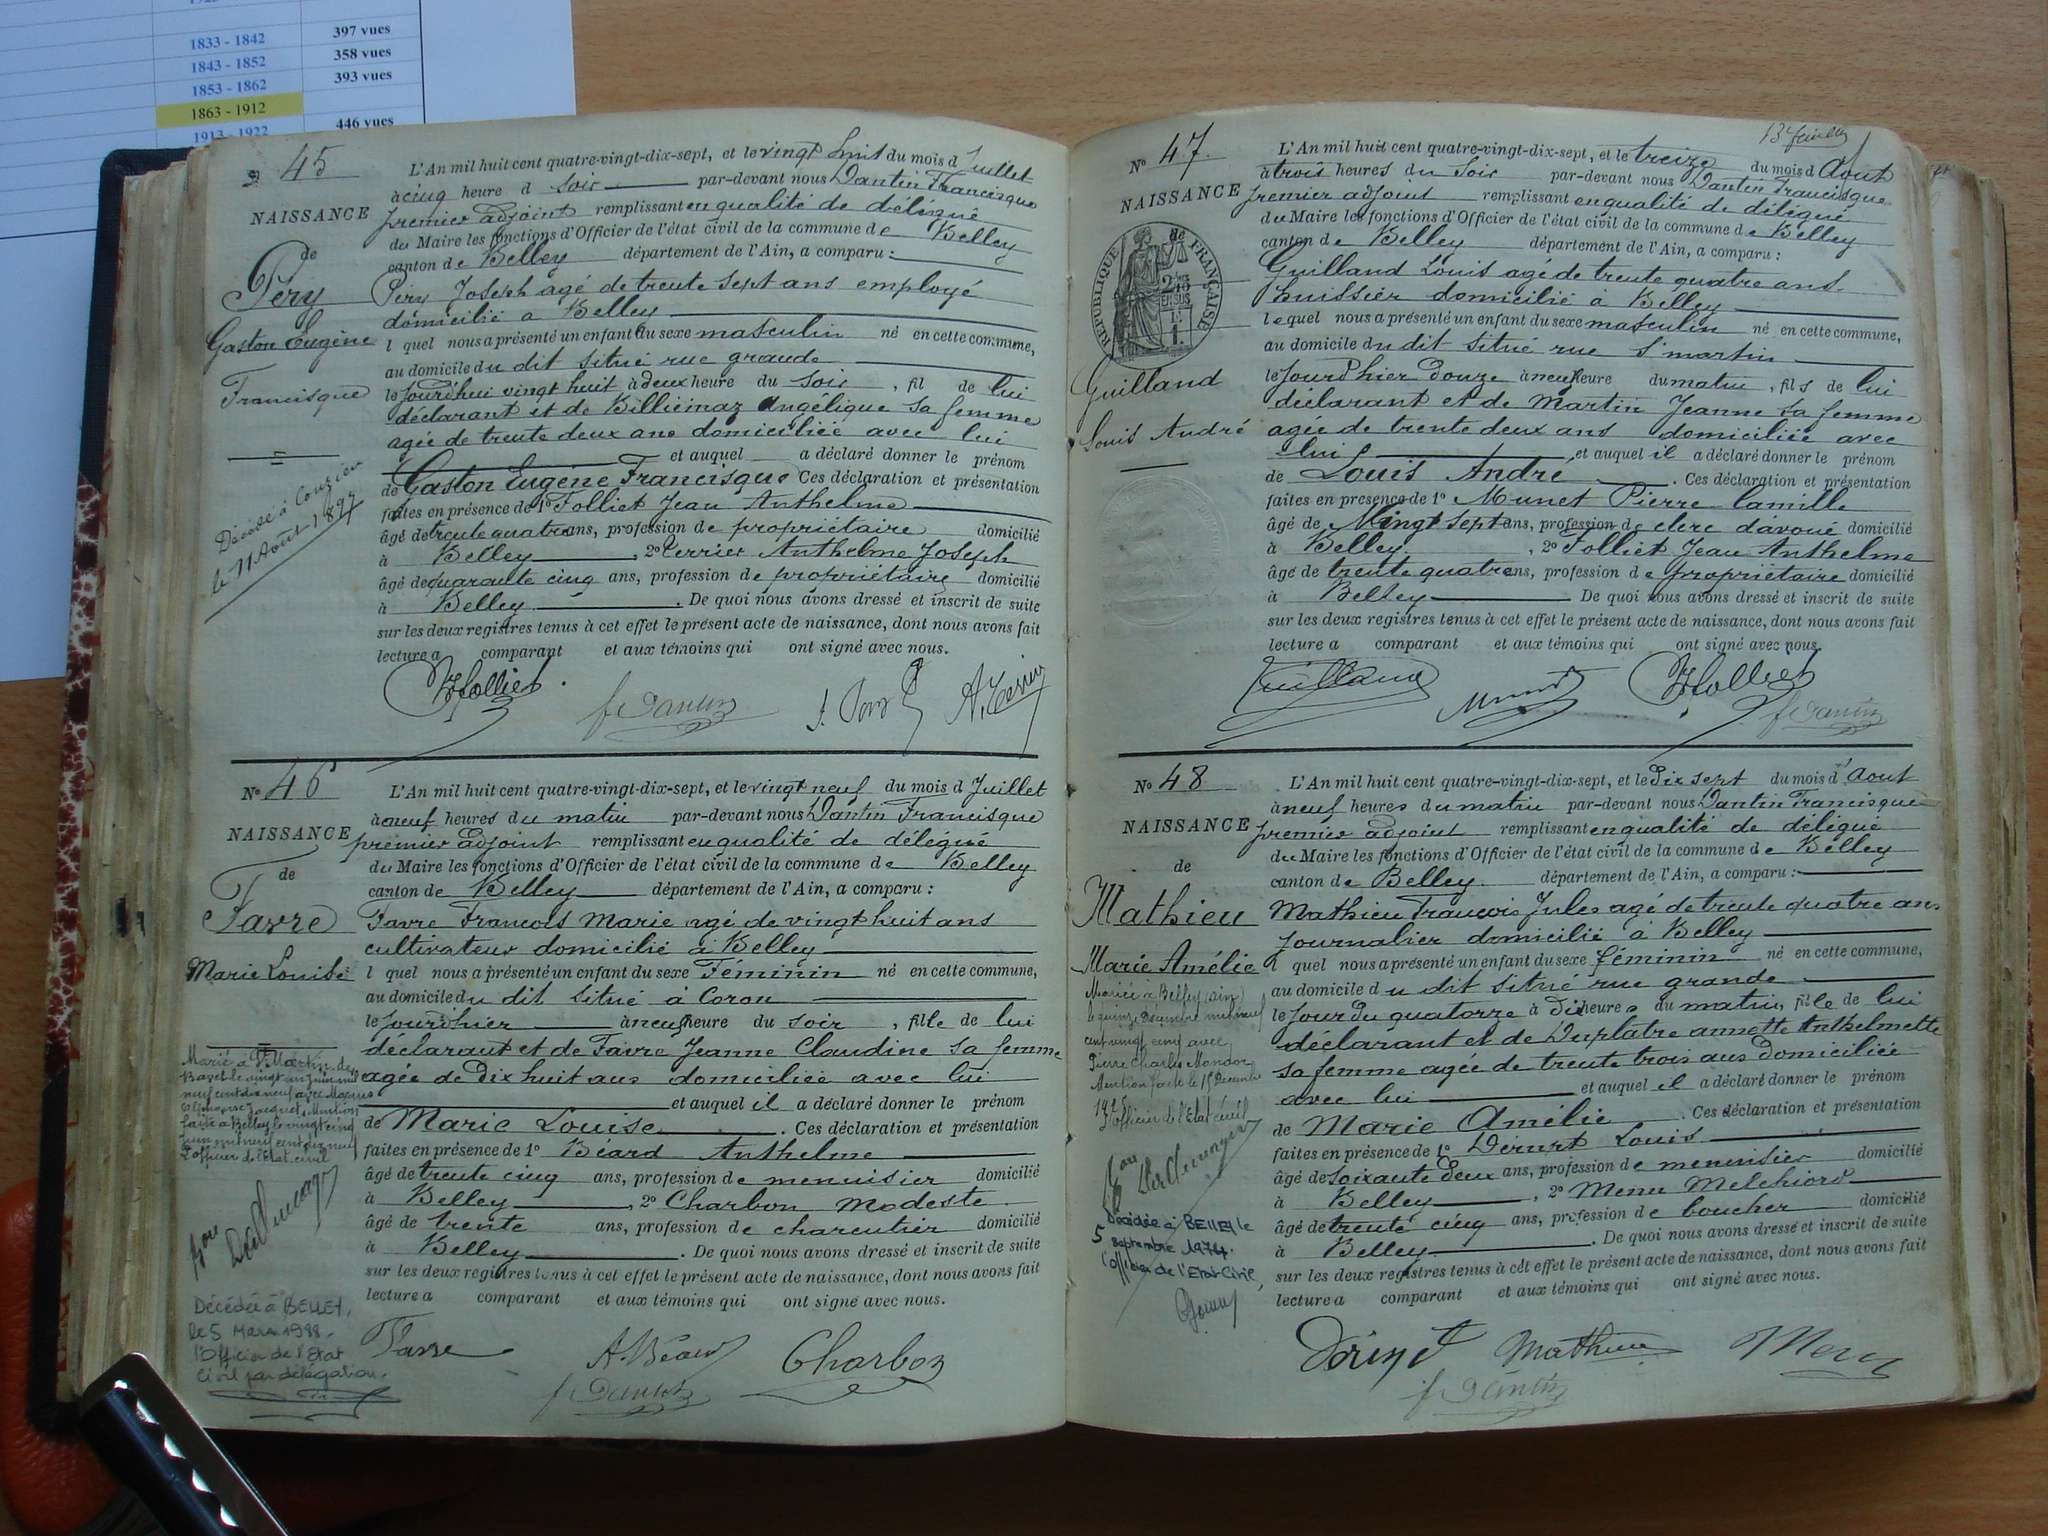 1833 - 1842 397 vues
1843 - 1852 358 vues
1853 - 1862 393 vues
1863 - 1912
1913 - 1922 446 vues
45
NAISSANCE
de
Péry
Gaston Eugène
Francisque
Décédé à
le 11 Août 1897
L'An mil huit cent quatre-vingt-dix-sept, et le vingt huit du mois d Juillet
à cinq heure d soir par-devant nous Dantin Francisque
premier adjoint remplissant en qualité de délégué
du Maire les fonctions d'Officier de l'état civil de la commune de Belley
canton de Belley département de l'Ain, a comparu :
Péry Joseph agé de trente sept ans employé
domicilié à Belley
l quel nous a présenté un enfant du sexe masculin né en cette commune,
au domicile du dit situé rue grande
le jourd'hui vingt huit à deux heure du soir , fil de lui
déclarant et de Billiémaz Angélique sa femme
agée de trente deux ans domiciliée avec lui
et auquel a déclaré donner le prénom
de Gaston Eugène Francisque Ces déclaration et présentation
faites en présence de 1º Folliet Jean Anthelme
âgé de trente quatre ans, profession de propriétaire domicilié
à Belley , 2º Terrier Anthelme Joseph
âgé de quarante cinq ans, profession de propriétaire domicilié
à Belley . De quoi nous avons dressé et inscrit de suite
sur les deux registres tenus à cet effet le présent acte de naissance, dont nous avons fait
lecture a comparant et aux témoins qui ont signé avec nous.
Folliet f Dantin J. Péry A. Terrier
No 46
NAISSANCE
de
Favre
Marie Louise
Marié à St Martin de
Bavel le vingt un juin mil
neuf cent dix neuf avec
Jacquet. Mention
faite à Belley le vingt cinq
juin mil neuf cent dix neuf
L'officier de l'Etat civil
Décédée à BELLEY,
le 5 Mars 1988.
l'Officier de l'Etat
Civil par délégation.
L'An mil huit cent quatre-vingt-dix-sept, et le vingt neuf du mois d Juillet
à neuf heures du matin par-devant nous Dantin Francisque
premier adjoint remplissant en qualité de délégué
du Maire les fonctions d'Officier de l'état civil de la commune de Belley
canton de Belley département de l'Ain, a comparu :
Favre François Marie agé de vingt huit ans
cultivateur domicilié à Belley
l quel nous a présenté un enfant du sexe Féminin né en cette commune,
au domicile du dit situé à Coron
le jourd'hier à neuf heure du soir , fille de lui
déclarant et de Favre Jeanne Claudine sa femme
agée de dix huit ans domiciliée avec lui
et auquel il a déclaré donner le prénom
de Marie Louise . Ces déclaration et présentation
faites en présence de 1º Béard Anthelme
âgé de trente cinq ans, profession de menuisier domicilié
à Belley , 2º Charbon Modeste
âgé de trente ans, profession de charcutier domicilié
à Belley . De quoi nous avons dressé et inscrit de suite
sur les deux registres tenus à cet effet le présent acte de naissance, dont nous avons fait
lecture a comparant et aux témoins qui ont signé avec nous.
Favre A. Béard Charbon
f Dantin
No 47
NAISSANCE
RÉPUBLIQUE FRANÇAISE
Guilland
Louis André
L'An mil huit cent quatre-vingt-dix-sept, et le treize du mois d Aout
à trois heures du soir par-devant nous Dantin Francisque
premier adjoint remplissant en qualité de délégué
du Maire les fonctions d'Officier de l'état civil de la commune de Belley
canton de Belley département de l'Ain, a comparu :
Guilland Louis agé de trente quatre ans
huissier domicilié à Belley
lequel nous a présenté un enfant du sexe masculin né en cette commune,
au domicile du dit situé rue St martin
le jourd'hier douze à neuf heure du matin , fils de lui
déclarant et de Martin Jeanne sa femme
agée de trente deux ans domiciliée avec
lui et auquel il a déclaré donner le prénom
de Louis André . Ces déclaration et présentation
faites en présence de 1º Munet Pierre Camille
âgé de Vingt sept ans, profession de clerc d'avoué domicilié
à Belley , 2º Folliet Jean Anthelme
âgé de trente quatre ans, profession de propriétaire domicilié
à Belley De quoi nous avons dressé et inscrit de suite
sur les deux registres tenus à cet effet le présent acte de naissance, dont nous avons fait
lecture a comparant et aux témoins qui ont signé avec nous.
Guilland Munet Folliet
f Dantin
No 48
NAISSANCE
de
Mathieu
Marie Amélie
Mariée à Belley (ain)
le quinze Décembre mil neuf
cent vingt cinq avec
Pierre Charles
Mention faite le 15 Décembre
1925
l'officier de l'Etat civil
Décédée à BELLEY le
5 septembre 1974.
l'officier de l'Etat Civil,
L'An mil huit cent quatre-vingt-dix-sept, et le Dix sept du mois d'Aout
à neuf heures du matin par-devant nous Dantin Francisque
premier adjoint remplissant en qualité de délégué
du Maire les fonctions d'Officier de l'état civil de la commune de Belley
canton de Belley département de l'Ain, a comparu :
Mathieu François Jules agé de trente quatre ans
journalier domicilié à Belley
l quel nous a présenté un enfant du sexe féminin né en cette commune,
au domicile du dit situé rue grande
le jour du quatorze à Dix heures du matin, fille de lui
déclarant et de Duplatre annette Anthelmette
sa femme agée de trente trois ans domiciliée
avec lui et auquel il a déclaré donner le prénom
de Marie Amélie . Ces déclaration et présentation
faites en présence de 1º Louis
âgé de soixante deux ans, profession de menuisier domicilié
à Belley , 2º Menu Melchiord
âgé de trente cinq ans, profession de boucher domicilié
à Belley . De quoi nous avons dressé et inscrit de suite
sur les deux registres tenus à cet effet le présent acte de naissance, dont nous avons fait
lecture a comparant et aux témoins qui ont signé avec nous.
Mathieu Menu
f Dantin